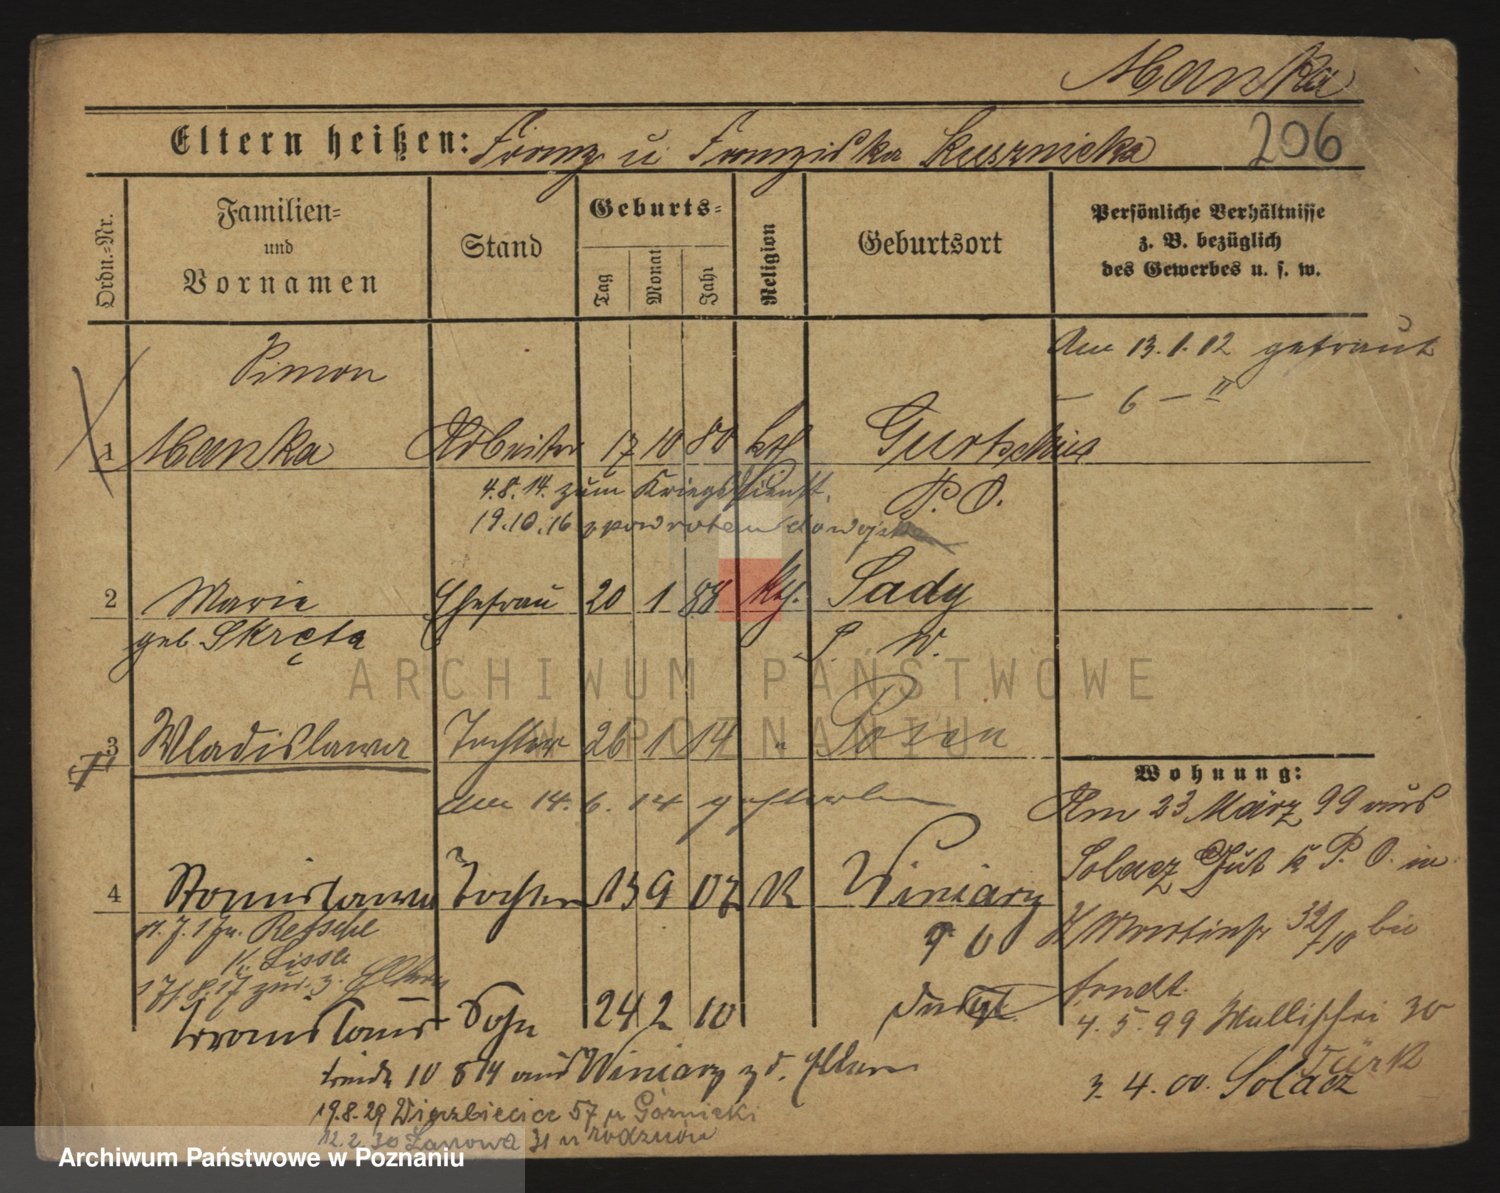 Manka
Eltern heißen: Franz u Franziska Kusznicka
206
Ordn.-Nr.
Familien-
und
Vornamen
Stand
Geburts-
Tag
Monat
Jahr
Religion
Geburtsort
Persönliche Verhältnisse
z. B. bezüglich
des Gewerbes u. s. w.
Simon
Am 13.1.12 getraut
— 6 — II
1 Manka Arbeiter 17 10 80 kth Gurtschin
4.8.14. zum Kriegsdienst.
P. O.
19.10.16 z powrotem do wojska
2 Marie Ehefrau 20 1 88 Kth. Sady
geb. Skręta
P. W.
3 Wladislawa Tochter 26 1 14 " Posen
Wohnung:
am 14.6.14 gestorben
Am 23 März 99 aus
Solacz Gut K P. O. in
4 Stanislawa Tochter 13 9 07 K Winiary
P O
Martinstr 32/10 bei
K. Lissa
17.8.17 zur. z. Eltern
Arndt
Sohn 24 2 10
4.5.99 Wallischei 30
Türk
10 8 14 aus Winiary z d. Eltern
3.4.00. Solacz
19.8.29 Wierzbięcice 57 u Górnicki
12.2.30 Łanowa 31 u rodziców
ARCHIWUM PAŃSTWOWE
W POZNANIU
Archiwum Państwowe w Poznaniu